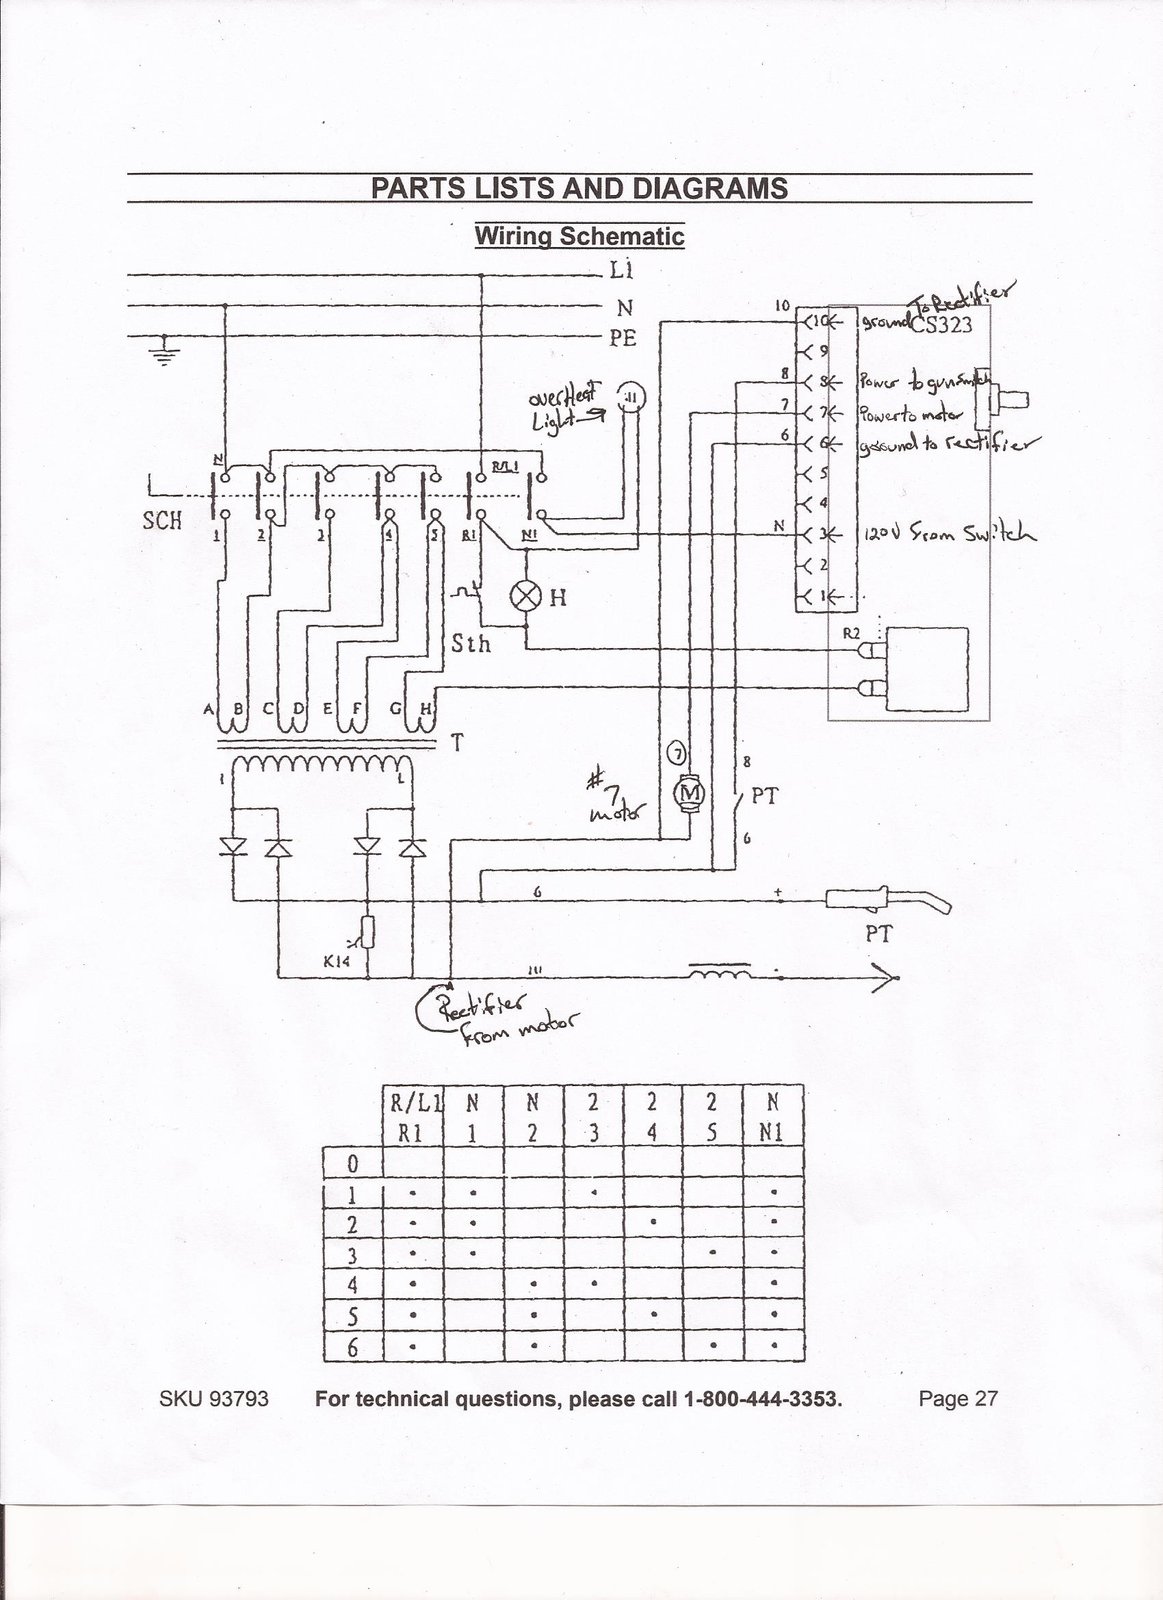 PARTS LISTS AND DIAGRAMS
Wiring Schematic
L1
N
PE
To Rectifier
10
10 ground CS323
9
8 8 Power to gunswitch
7 7 Power to motor
6 6 ground to rectifier
5
4
N 3 120V From Switch
2
1
overHeat
Light
N R/L1
SCH
1 2 3 4 5 R1 N1
H
Sth
R2
A B C D E F G H
T
1 L
7
# 7
motor
M
8
PT
6
6 +
PT
K14
111 -
Rectifier
From motor
R/L1 N N 2 2 2 N
R1 1 2 3 4 5 N1
0
1 • • • •
2 • • • •
3 • • • •
4 • • • •
5 • • • •
6 • • • •
SKU 93793 For technical questions, please call 1-800-444-3353. Page 27